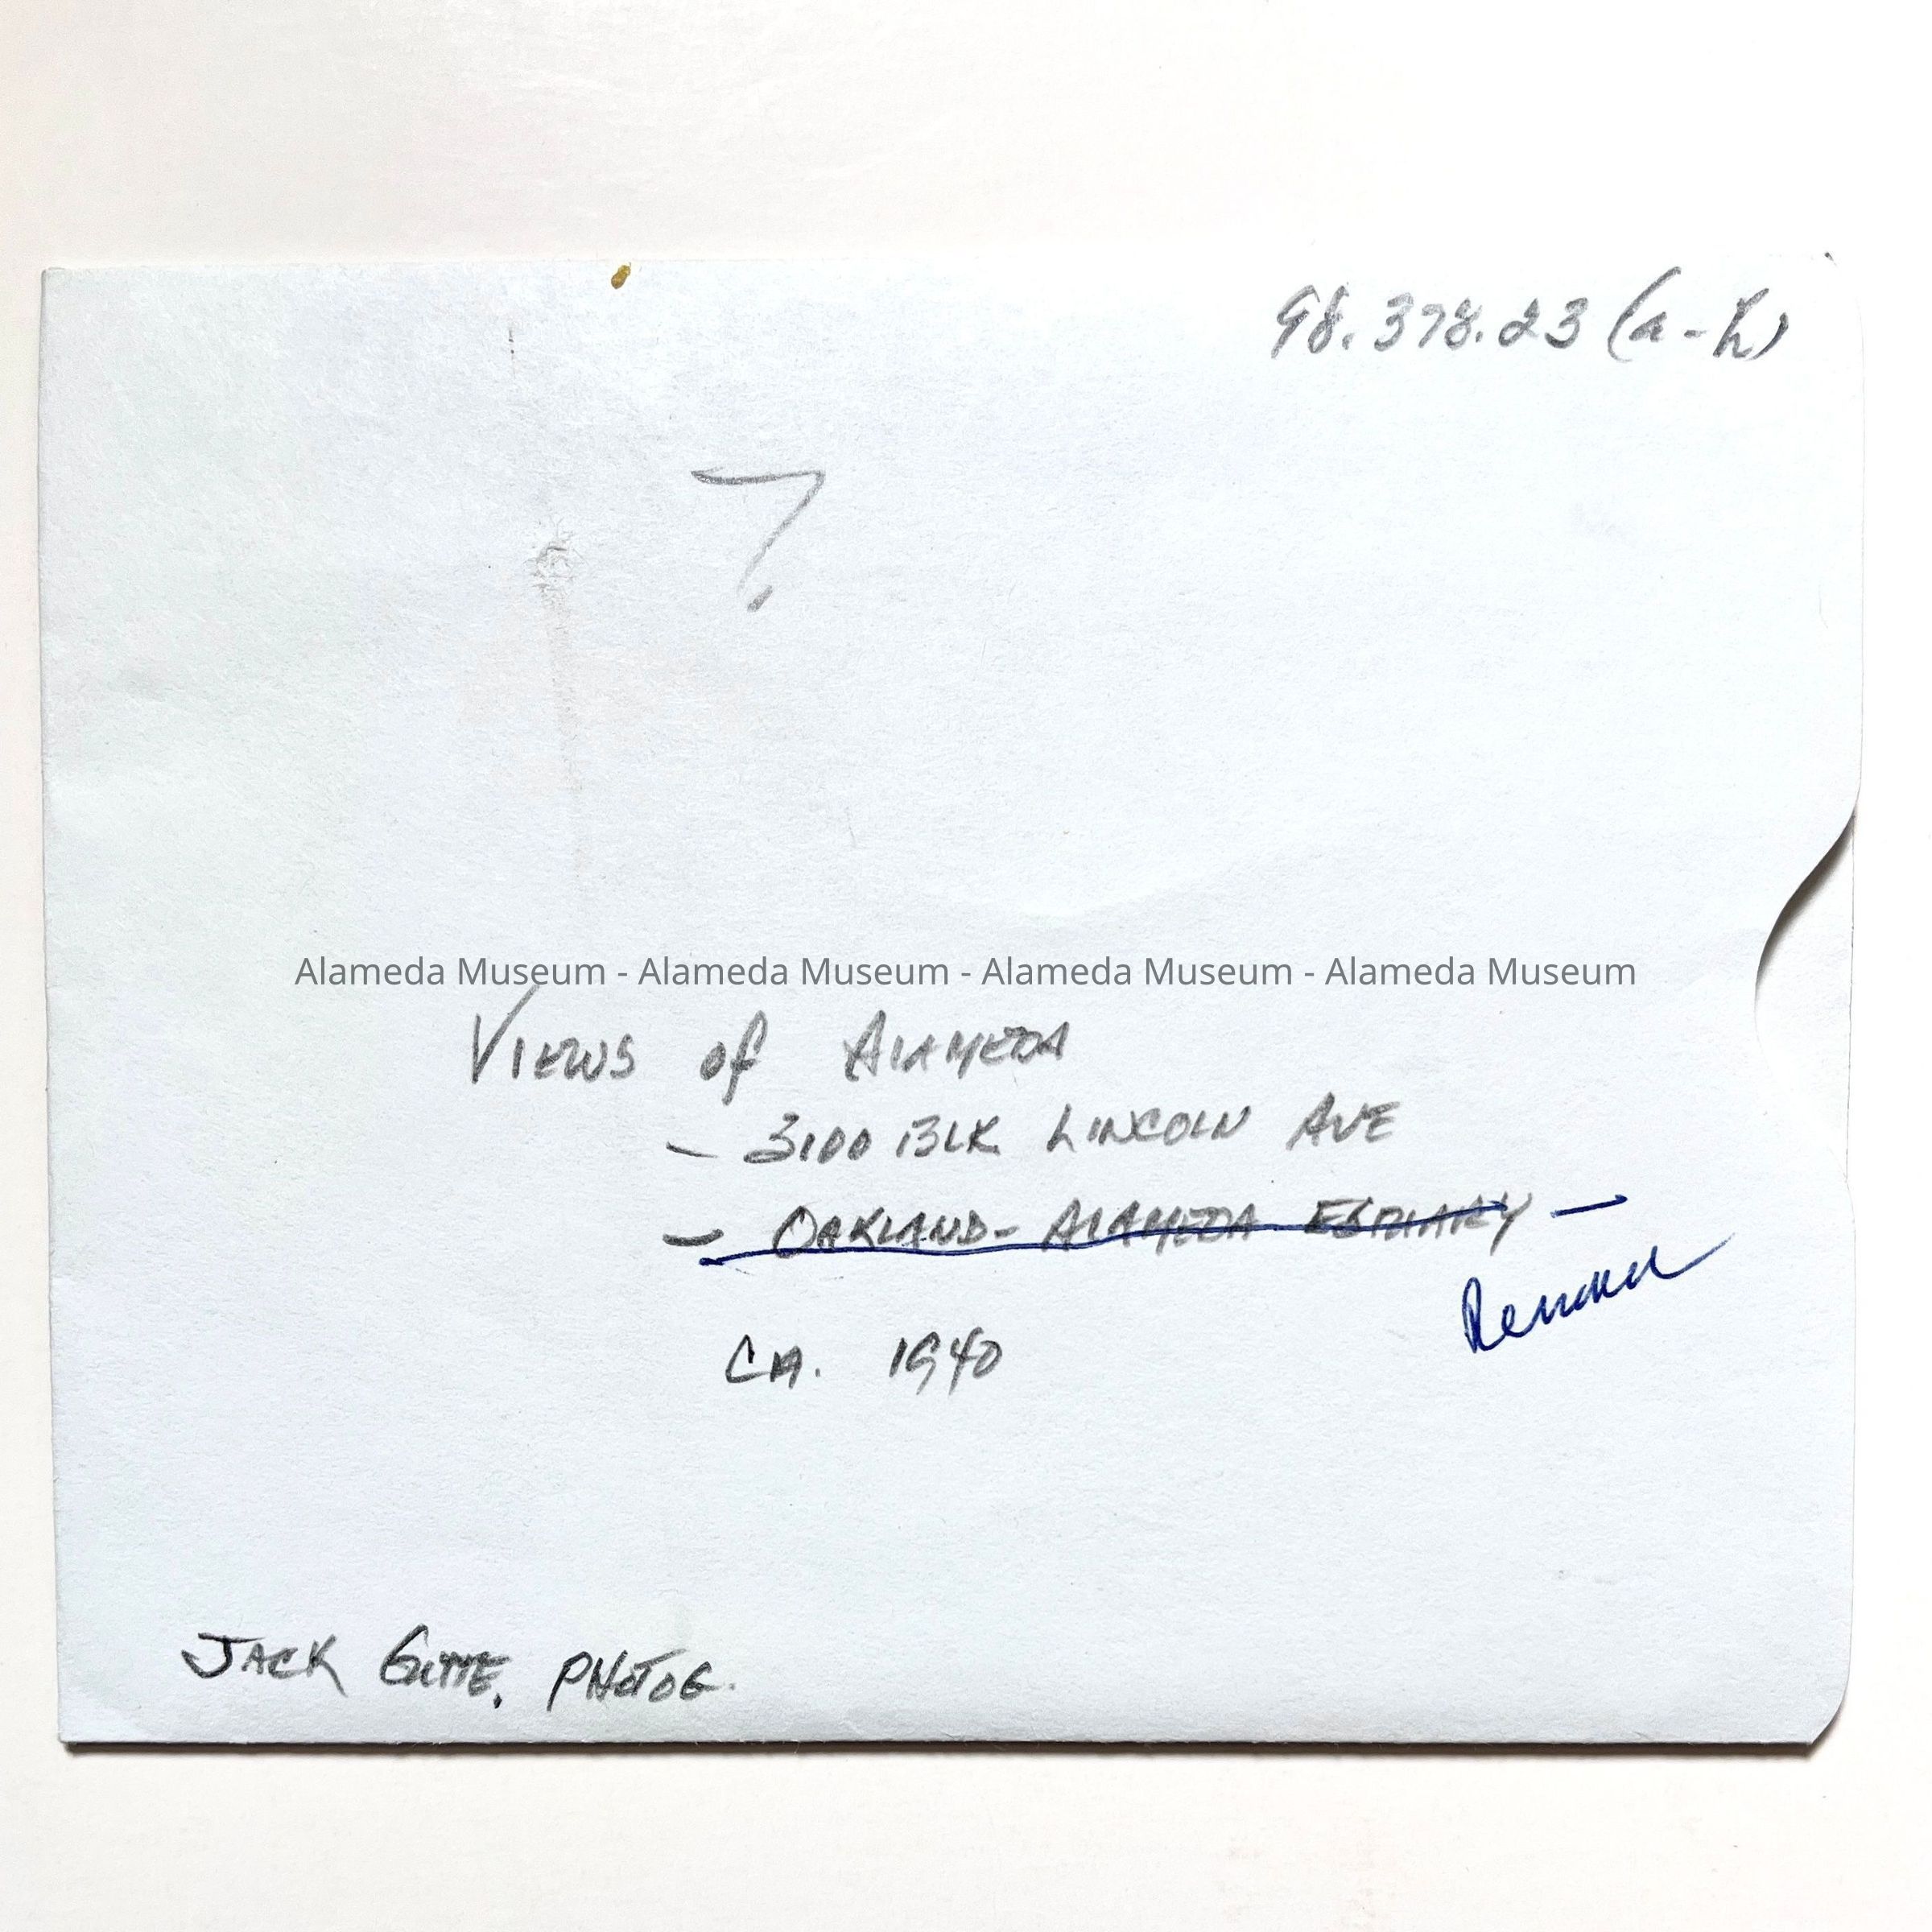 98.378.23 (a-h)
?
Alameda Museum - Alameda Museum - Alameda Museum - Alameda Museum
Views of Alameda
- 3100 BLK LINCOLN AVE
- OAKLAND- ALAMEDA ESTUARY -
CA. 1940
JACK PHOTOG.